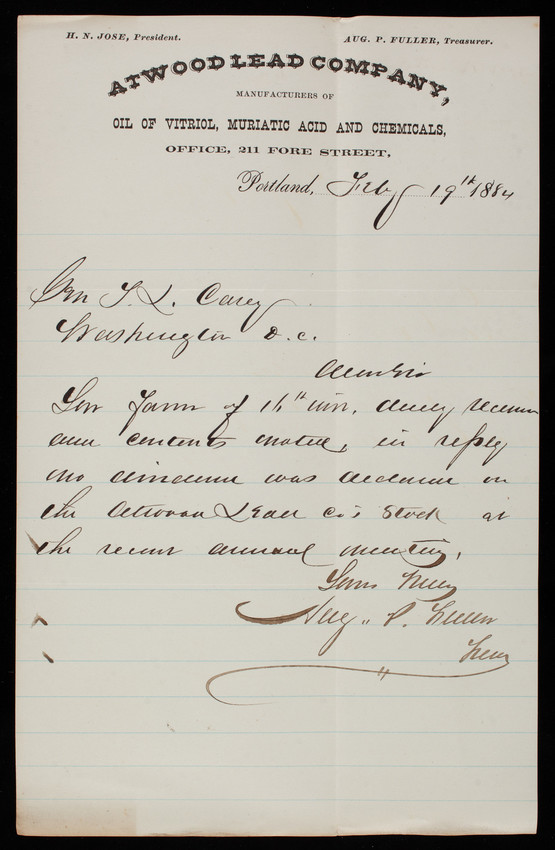 H. N. JOSE, President. AUG. P. FULLER, Treasurer.
ATWOOD LEAD COMPANY,
MANUFACTURERS OF
OIL OF VITRIOL, MURIATIC ACID AND CHEMICALS,
OFFICE, 211 FORE STREET,
Portland, Feby 19th 1884
Gen T. L. Casey
Washington D. C.
Dear Sir
Your favor of 16th inst. duly received
and contents noted, in reply
no dividend was declared on
the Atwood Lead Co's Stock at
the recent annual meeting,
Yours truly
Aug. P. Fuller
Treas